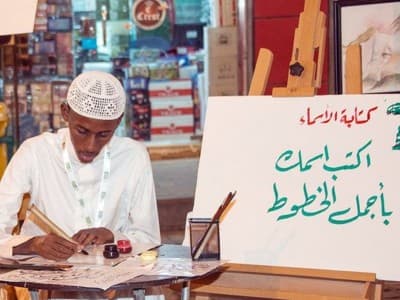 Crest
كتابة الأسماء
اكتب اسمك
بأجمل الخطوط